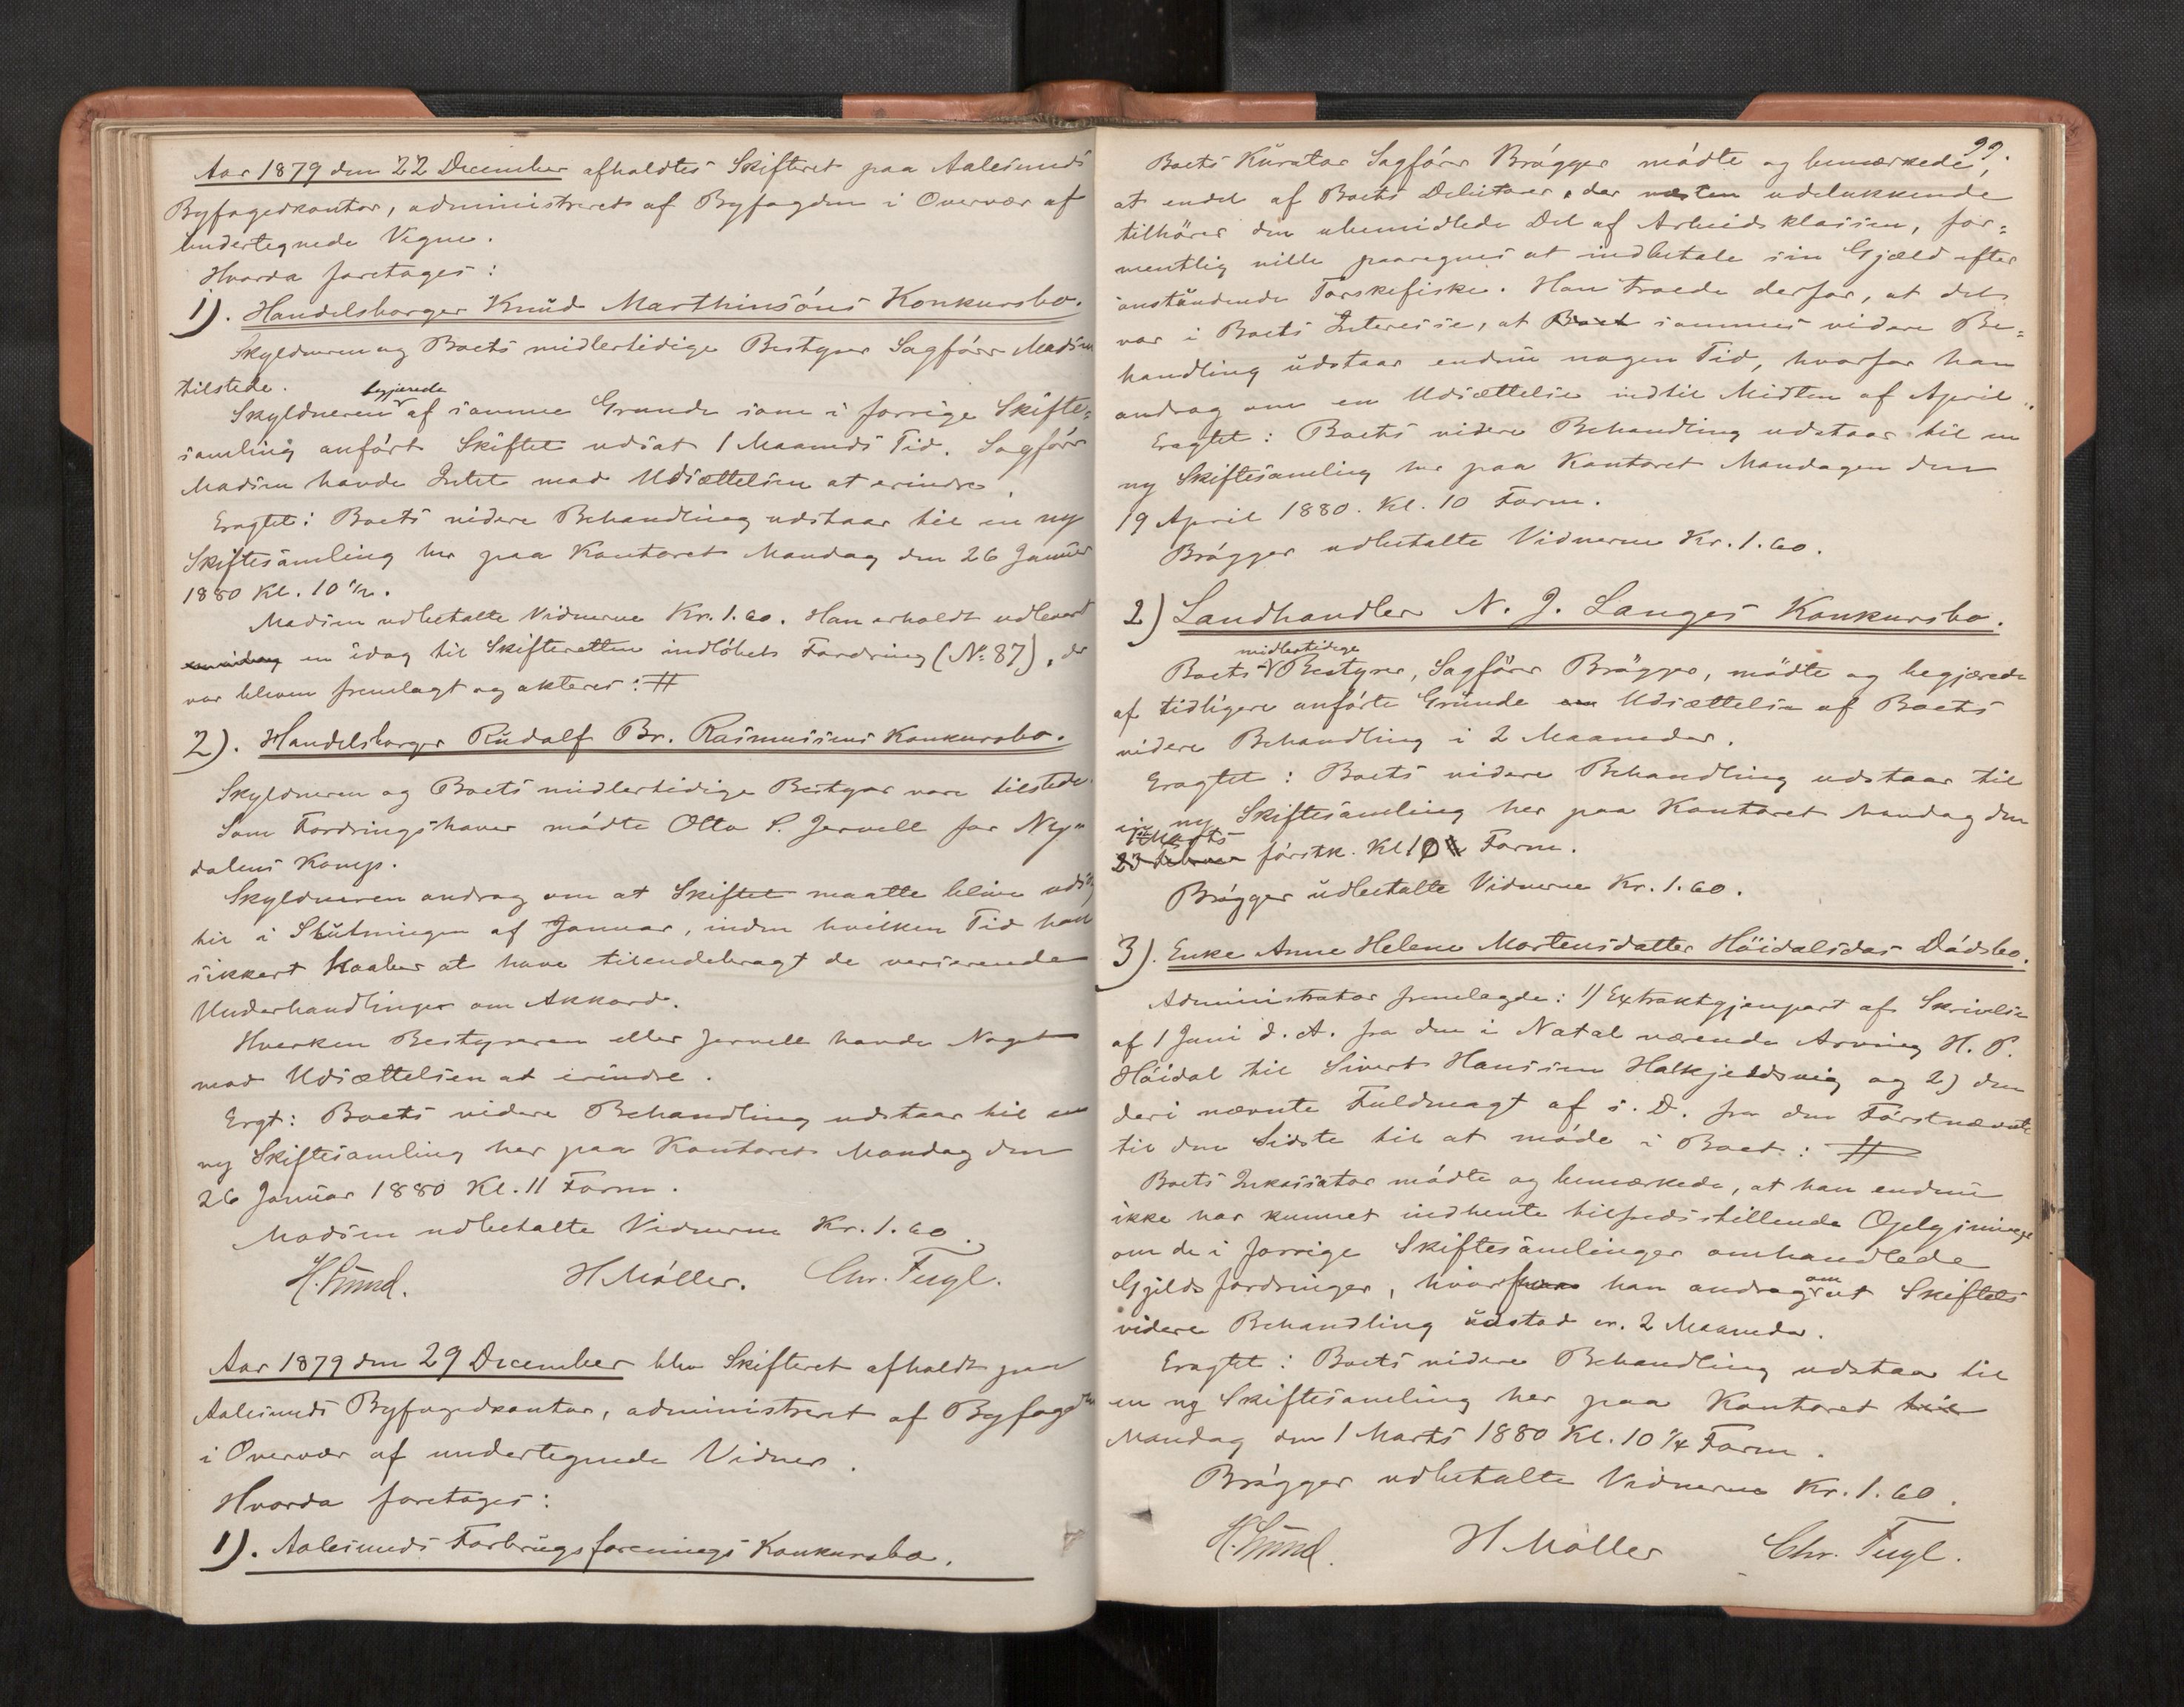 Aar 1879 den 22 December afholdtes Skifteret paa Aalesunds
Byfogedkontor, administreret af Byfogden i Overvær af
undertegnede Vegne.
Hvorda foretages:
1). Handelsborger Knud Marthinsöns Konkursbo.
Skyldneren og Boets midlertidige Bestyrer Sagfører Madsen
tilstede.
Skyldneren begjærede af samme Grunde som i forrige Skifte=
samling anført Skiftet udsat 1 Maaneds Tid. Sagfører
Madsen havde Intet mod Udsættelsen at erindre.
Eragtet: Boets videre Behandling udstaar til en ny
Skiftesamling her paa Kontoret Mandag den 26 Januar
1880 Kl. 10 1/2.
Madsen udbetalte Vidnerne Kr. 1.60. Han erholdt udleveret
en idag til Skifteretten indløbet Fordring (No 87), der
var bleven fremlagt og akteres: #
2). Handelsborger Rudolf Br. Rasmussens Konkursbo.
Skyldneren og Boets midlertidige Bestyrer vare tilstede.
Som Fordringshaver mødte Otto P. Jervell for Ny=
dalens Komp.
Skyldneren androg om at Skiftet maatte blive uds.
til i Slutningen af Januar, inden hvilken Tid han
sikkert haaber at have tilendebragt de verserende
Underhandlinger om Akkord.
Hverken Bestyreren eller Jervell havde Noget
mod Udsættelsen at erindre.
Ergt: Boets videre Behandling udstaar til en
ny Skiftesamling her paa Kontoret Mandag den
26 Januar 1880 Kl. 11 Form.
Madsen udbetalte Vidnerne Kr. 1.60.
H. Smud. H Møller. Chr. Fugl.
Aar 1879 den 29 December blev Skifteret afholdt paa
Aalesunds Byfogedkontor, administreret af Byfogden
i Overvær af undertegnede Vidner.
Hvorda foretages:
1). Aalesunds Forbrugsforenings Konkursbo.
99.
Boets Kurator Sagfører Brøgger mødte og bemærkede,
at endel af Boets Debitorer, der næsten udelukkende
tilhører den ubemidlede Del af Arbeidsklassen, for=
mentlig ville paaregnes at indbetale sin Gjæld efter
anstundende Torskefiske. Han troede derfor, at det
var i Boets Interesse, at Boet sammes videre Be=
handling udstaar endnu nogen Tid, hvorfor han
androg om en Udsættelse indtil Midten af April.
Eragtet: Boets videre Behandling udstaar til en
ny Skiftesamling her paa Kontoret Mandagen den
19 April 1880. Kl. 10 Form.
Brøgger udbetalte Vidnerne Kr. 1.60.
2) Landhandler N. J. Langes Konkursbo.
Boets midlertidige Bestyrer, Sagfører Brøgger, mødte og begjærede
af tidligere anførte Grunde en Udsættelse af Boets
videre Behandling i 2 Maaneder.
Eragtet: Boets videre Behandling udstaar til
en ny Skiftesamling her paa Kontoret Mandag den
1ste Marts
23 Februar førstk. Kl 10 Form.
Brøgger udbetalte Vidnerne Kr. 1.60.
3). Enke Anne Helene Mortensdatter Höidalsdas Dødsbo.
Administrator fremlagde: 1) Extraktgjenpart af Skrivelse
af 1 Juni d. A. fra den i Natal værende Arving H. P.
Höidal til Sivert Hanssen Halkjeldsvig og 2) den
deri nævnte Fuldmagt af s. D. fra den Førstnævnte
til den Sidste til at møde i Boet: #
Boets Inkassator mødte og bemærkede, at han endnu
ikke har kunnet indhente tilfredsstillende Oplysninger
om de i forrige Skiftesamlinger omhandlede
Gjeldsfordringer, hvorfor han androg om at Skiftets
videre Behandling udstod cr. 2 Maaneder.
Eragtet: Boets videre Behandling udstaar til
en ny Skiftesamling her paa Kontoret til
Mandag den 1 Marts 1880 Kl. 10 1/4 Form.
Brøgger udbetalte Vidnerne Kr. 1.60.
H. Smud. H Møller Chr. Fugl.